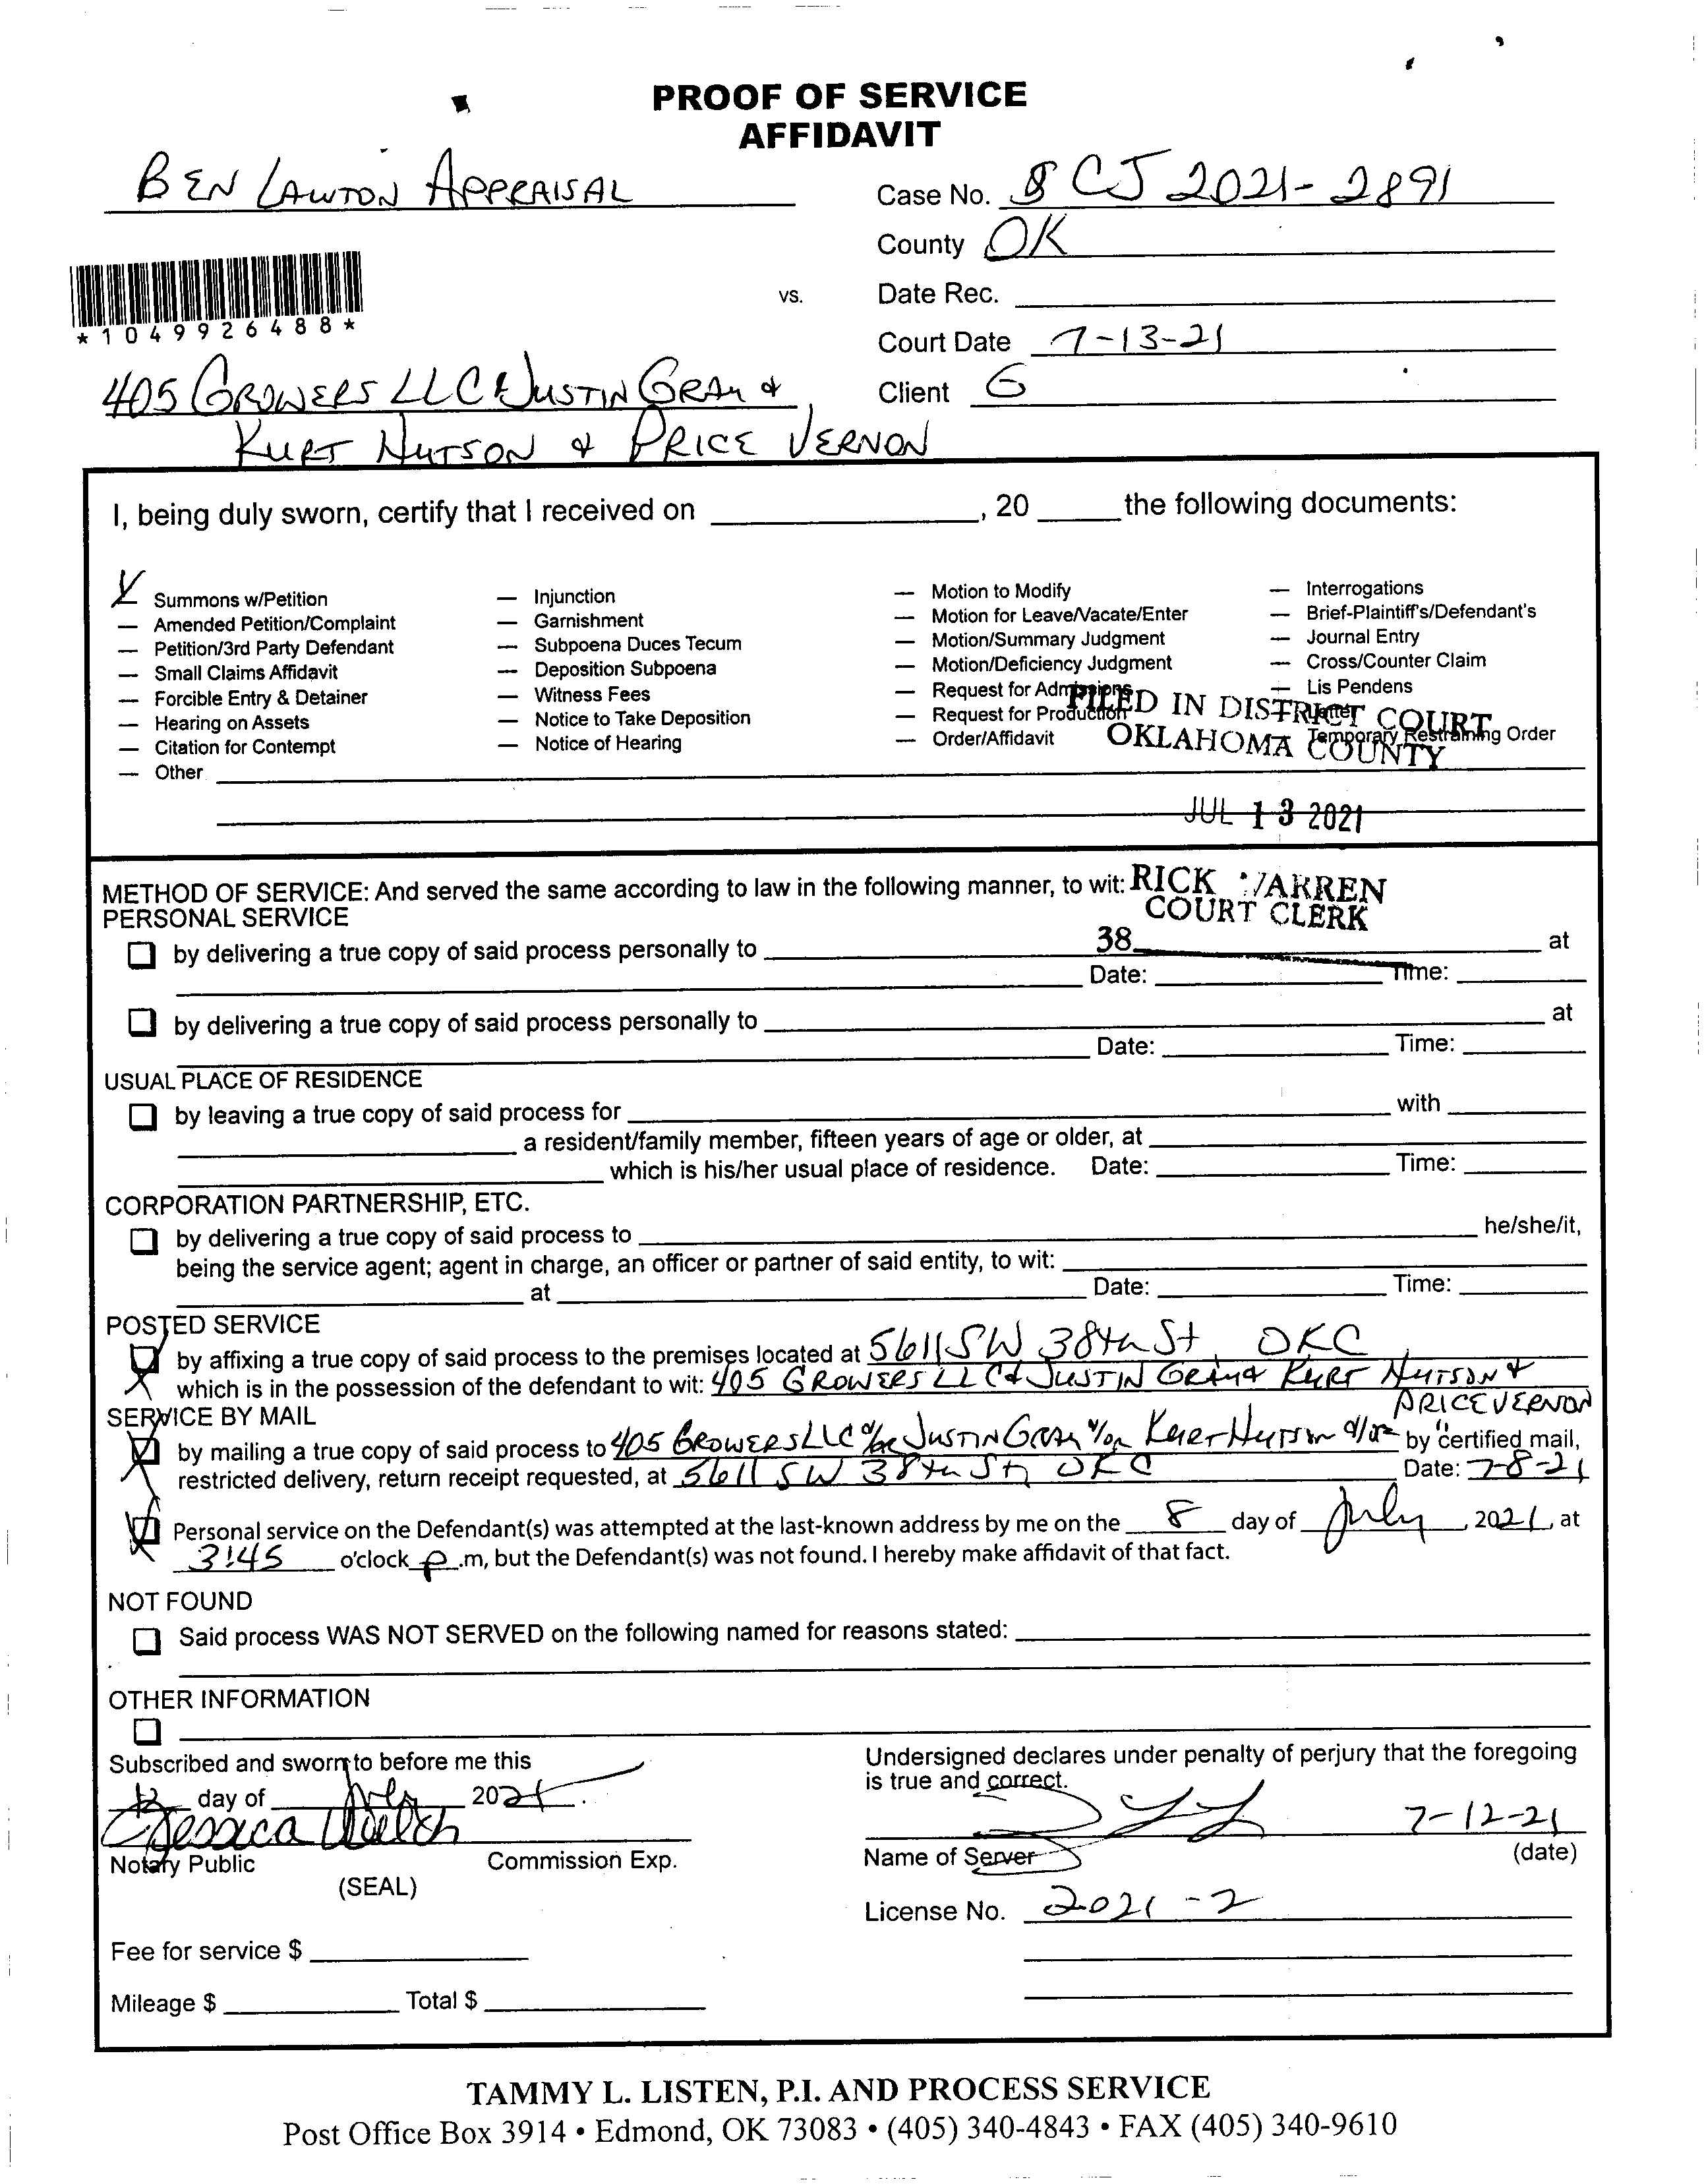 PROOF OF SERVICE
AFFIDAVIT
BEN LAWTON APPRAISAL
Case No. CJ 2021-2891
County OK
*1049926488*
vs.
Date Rec.
Court Date 7-13-21
405 GROWERS LLC & JUSTIN GRAY &
Client G
KURT HUTSON & PRICE VERNON
I, being duly sworn, certify that I received on ____________, 20 _____ the following documents:
Summons w/Petition — Injunction — Motion to Modify — Interrogations
— Amended Petition/Complaint — Garnishment — Motion for Leave/Vacate/Enter — Brief-Plaintiff's/Defendant's
— Petition/3rd Party Defendant — Subpoena Duces Tecum — Motion/Summary Judgment — Journal Entry
— Small Claims Affidavit — Deposition Subpoena — Motion/Deficiency Judgment — Cross/Counter Claim
— Forcible Entry & Detainer — Witness Fees — Request for Admissions — Lis Pendens
— Hearing on Assets — Notice to Take Deposition — Request for Production — Letter
— Citation for Contempt — Notice of Hearing — Order/Affidavit Temporary Restraining Order
— Other
FILED IN DISTRICT COURT
OKLAHOMA COUNTY
JUL 13 2021
RICK WARREN
COURT CLERK
38
METHOD OF SERVICE: And served the same according to law in the following manner, to wit:
PERSONAL SERVICE
by delivering a true copy of said process personally to ____________ at
Date: ______ Time: ______
by delivering a true copy of said process personally to ____________ at
Date: ______ Time: ______
USUAL PLACE OF RESIDENCE
by leaving a true copy of said process for ____________ with ______
a resident/family member, fifteen years of age or older, at
which is his/her usual place of residence. Date: ______ Time: ______
CORPORATION PARTNERSHIP, ETC.
by delivering a true copy of said process to ____________ he/she/it,
being the service agent; agent in charge, an officer or partner of said entity, to wit:
at ____________ Date: ______ Time: ______
POSTED SERVICE
by affixing a true copy of said process to the premises located at 5611 SW 38th St, OKC
which is in the possession of the defendant to wit: 405 GROWERS LLC & JUSTIN GRAY & KURT HUTSON &
PRICE VERNON
SERVICE BY MAIL
by mailing a true copy of said process to 405 GROWERS LLC &/or JUSTIN GRAY &/or KURT HUTSON &/or " by certified mail,
restricted delivery, return receipt requested, at 5611 SW 38th St, OKC Date: 7-8-21
Personal service on the Defendant(s) was attempted at the last-known address by me on the 8 day of July, 2021, at
3:45 o'clock p.m, but the Defendant(s) was not found. I hereby make affidavit of that fact.
NOT FOUND
Said process WAS NOT SERVED on the following named for reasons stated:
OTHER INFORMATION
Subscribed and sworn to before me this
12 day of July 2021.
Jessica Welch
Notary Public Commission Exp.
(SEAL)
Undersigned declares under penalty of perjury that the foregoing
is true and correct.
7-12-21
Name of Server (date)
License No. 2021-2
Fee for service $
Mileage $ ______ Total $ ______
TAMMY L. LISTEN, P.I. AND PROCESS SERVICE
Post Office Box 3914 • Edmond, OK 73083 • (405) 340-4843 • FAX (405) 340-9610